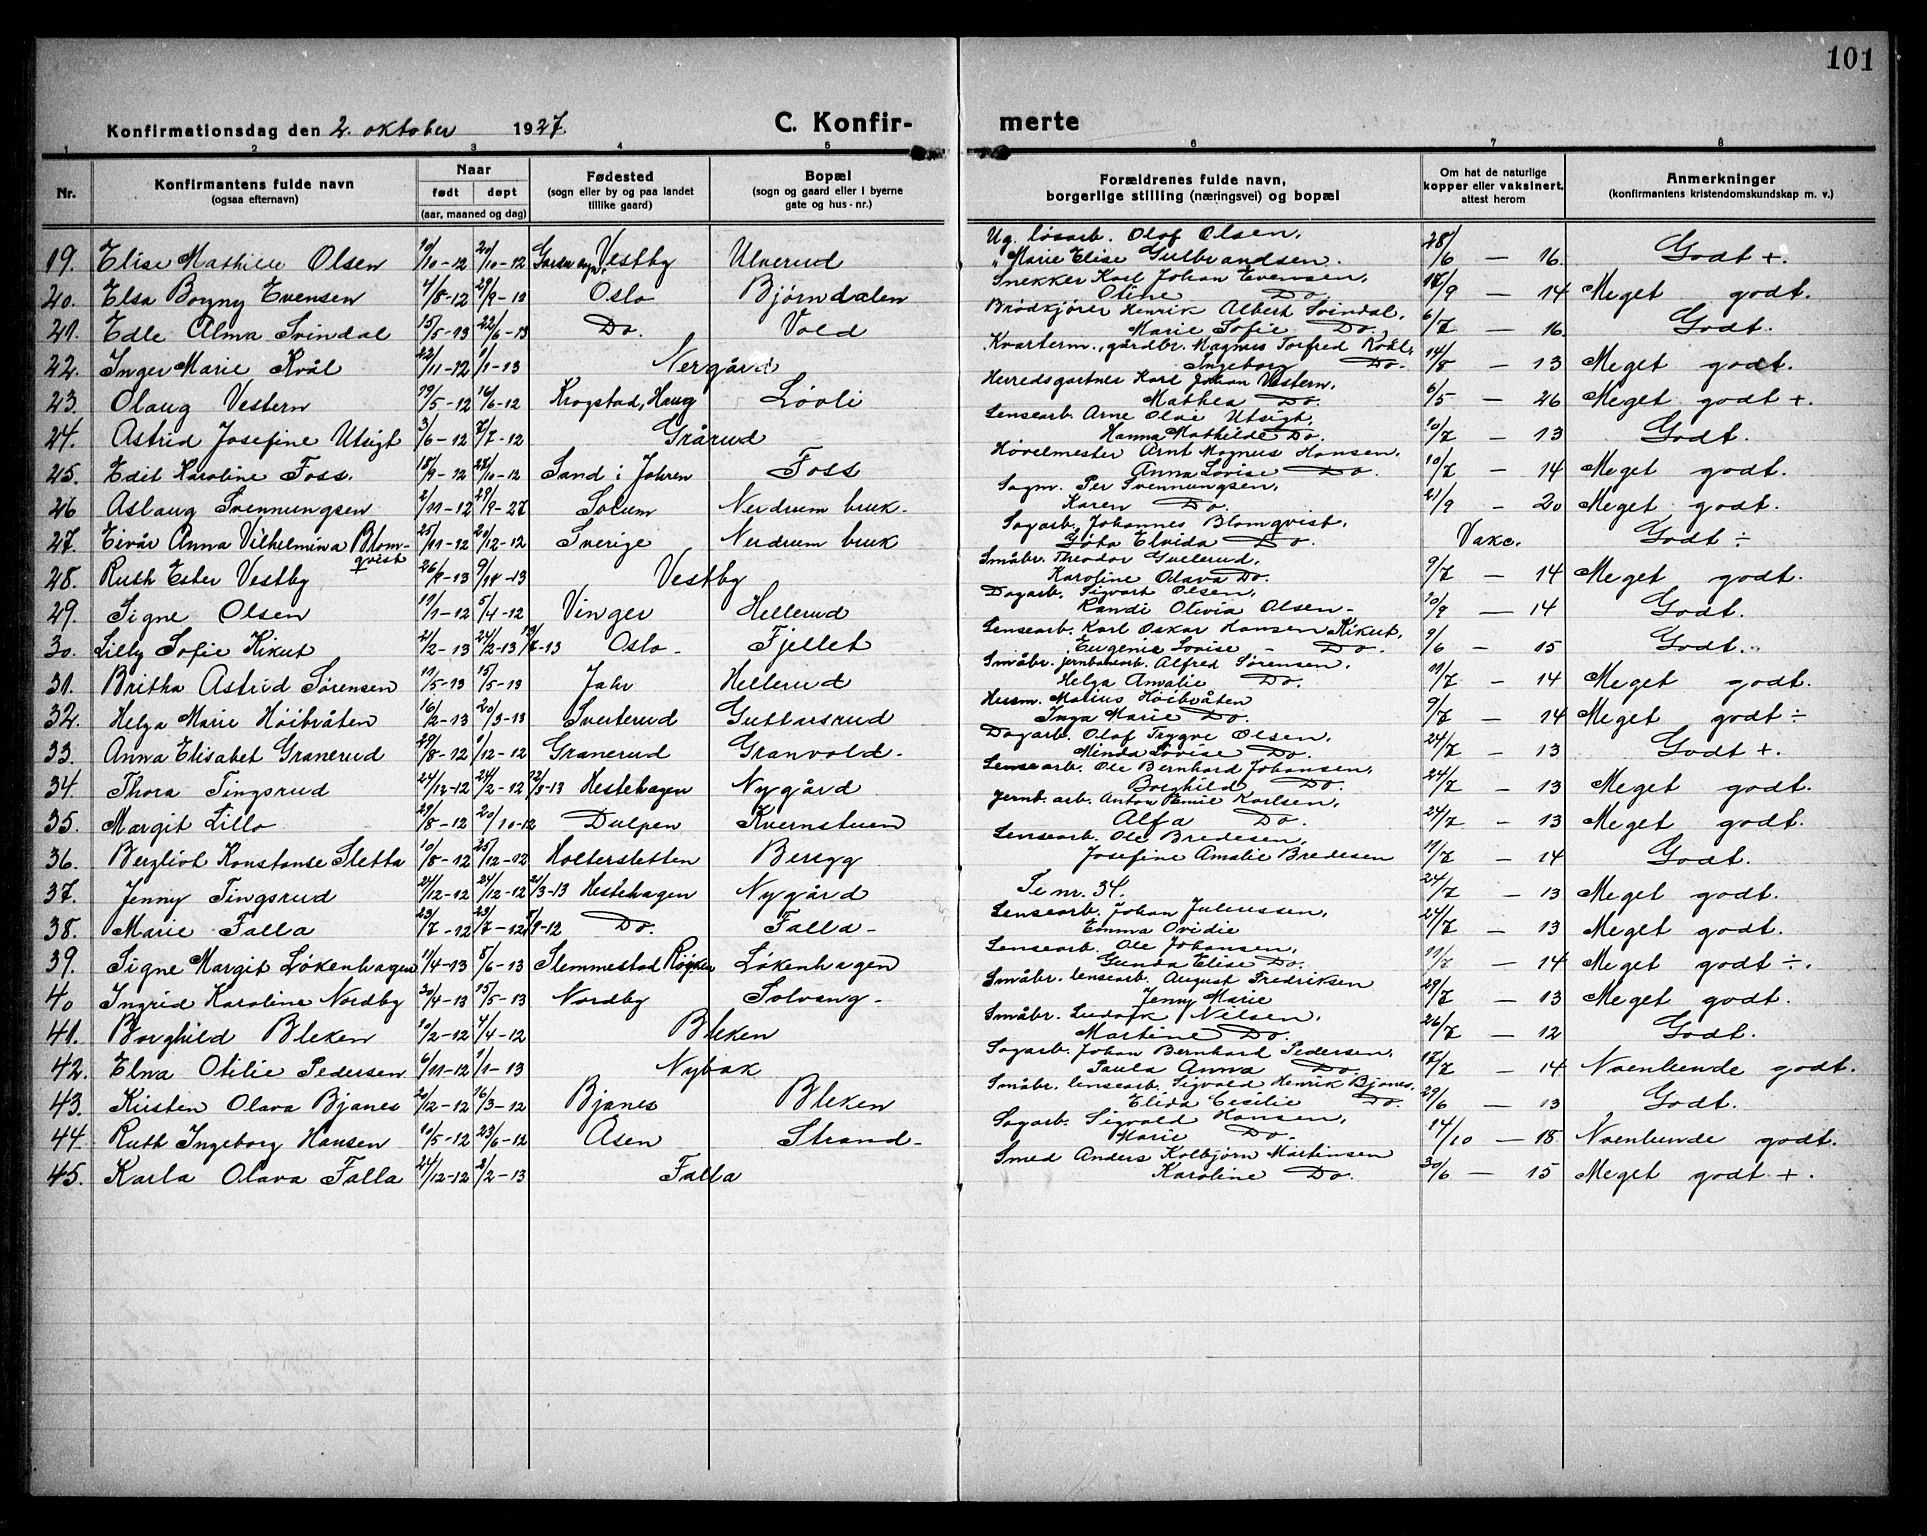 101
Konfirmationsdag den 2. oktober 1927. C. Konfir- merte
1 2 3 4 5 6 7 8
Nr. Konfirmantens fulde navn (ogsaa efternavn) Naar født døpt (aar, maaned og dag) Fødested (sogn eller by og paa landet tillike gaard) Bopæl (sogn og gaard eller i byerne gate og hus-nr.) Forældrenes fulde navn, borgerlige stilling (næringsvei) og bopæl Om hat de naturlige kopper eller vaksinert, attest herom Anmerkninger (konfirmantens kristendomskundskap m. v.)
19. Elise Mathilde Olsen 10/10-12 20/10-12 Vestby Ulverud Ug. løsarb. Olof Olsen, " Marie Elise Gulbrandsen. 28/6 — 16. Godt +.
20. Elsa Borgny Evensen 7/8-12 29/9-12 Oslo Bjørndalen Snekker Karl Johan Evensen, Otine Do. 18/9 — 14 Meget godt.
21. Edle Alma Svindal 15/5-13 22/6-13 Do. Vold Brødkjører Henrik Albert Svindal, Marie Sofie Do. 6/7 — 16. Godt.
22. Inger Marie Kvål 22/11-12 1/1-13 Nergård Kvarterm., gårdbr. Magnus Torfred Kvål, Ingeborg Do. 14/8 — 13 Meget godt.
23. Olaug Vestern 19/5-12 16/6-12 Krogstad, Haug Løvli Herredsgartner Karl Johan Vestern, Mathea Do. 6/5 — 26 Meget godt +.
24. Astrid Josefine Utsigt 3/6-12 7/7-12 Grårud Lensearb. Arne Olai Utsigt, Hanna Mathilde Do. 10/7 — 13 Godt.
25. Edit Karoline Foss. 18/9-12 27/10-12 Sand i Jahren Foss Høvelmester Arnt Magnus Hansen, Anna Lovise Do. 10/7 — 14 Meget godt.
26 Aslaug Svennungsen 2/11-12 29/9-27 Solum Nerdrum bruk. Sagm. Per Svennungsen, Karen Do. 21/9 - 20 Meget godt.
27. Eivår Anna Vilhelmina Blomqvist 25/11-12 20/12-12 Sverige Nerdrum bruk Sagarb. Johannes Blomqvist, Göta Elvida Do. Vakc. Godt ÷
28. Ruth Ester Vestby 26/9-13 9/11-13 Vestby Småbr. Theodor Gullerud, Karoline Olava Do. 9/7 — 14 Meget godt.
29. Signe Olsen 17/1-12 5/4-12 Vinger Hellerud Dagarb. Sigvart Olsen, Randi Olivia Olsen- 20/9 — 14 Godt.
30. Lilly Sofie Kikut 2/2-13 24/2-13 Oslo - Fjellet Lensearb. Karl Oskar Hansen Kikut, Eugenie Lovise - Do. 9/6 — 15 Godt.
31. Britha Astrid Sørensen 11/5-13 15/5-13 Jahr Hellerud Småbr. jernbanearb. Alfred Sørensen, Helga Amalie Do. 11/7 — 14 Meget godt.
32. Helga Marie Høibråten 16/2-13 20/3-13 Sverterud Guttarsrud Husm. Marius Høibråten Inga Marie Do. 9/7 — 14 Meget godt ÷
33. Anna Elisabet Granerud 29/8-12 1/12-12 Granerud Granvold- Dagarb. Olof Trygve Olsen, Minda Lovise Do. 24/7 — 13 Godt +.
34. Thora Tingsrud 24/12-12 24/2-12 12/3-13 Hestehagen Nygård Lensearb. Ole Bernhard Johansen, Borghild Do. 24/7 — 13 Meget godt.
35. Margit Lillo 29/8-12 20/10-12 Dulpen Kvernstuen Jernb. arb. Anton Emil Karlsen, Alfa Do. 24/7 — 13 Meget godt.
36. Bergliot Konstanse Sletta 10/8-12 25/12-12 Holterstetten Beregg Lensearb. Ole Bredesen, Josefine Amalie Bredesen 11/7 — 14 Godt.
37. Jenny Tingsrud 24/12-12 24/12-12 2/3-13 Hestehagen Nygård Se nr. 34. 24/7 — 13 Meget godt.
38. Marie Falla 23/7-12 23/7-12 1/9-12 Do. Falla- Lensearb. Johan Juliussen, Emma Ovidie 24/7 — 13 Meget godt.
39. Signe Margit Løkenhagen 11/4-13 5/6-13 Slemmestad Røyken Løkenhagen Lensearb. Ole Johansen, Gunda Elise Do. 11/7 — 14 Meget godt ÷.
40 Ingrid Karoline Nordby 20/4-13 15/5-13 Nordby Solvang- Småbr. lensearb. August Fredriksen Jenny Marie 29/7 — 13 Meget godt.
41. Borghild Bleken 10/2-12 7/4-12 Bleken Småbr. Ludvik Nilsen, Martine Do. 26/7 — 12 Godt.
42. Elna Otilie Pedersen 6/11-12 1/1-13 Nybak Sagarb. Johan Bernhard Pedersen, Paula Anna Do. 17/7 — 14 Noenlunde godt.
43. Kirsten Olava Bjanes 20/12-12 16/3-12 Bjanes Bleken Småbr. lensearb. Sigvald Henrik Bjanes, Elida Cecilie Do. 29/6 — 13 Godt.
44. Ruth Ingeborg Hansen 10/5-12 23/6-12 Åsen Strand- Sagarb. Sigvald Hansen, Marie Do. 14/10 — 18 Noenlunde godt.
45. Karla Olava Falla 24/12-12 2/2-13 Falla Smed Anders Kolbjørn Martinsen Karoline Do. 30/6 — 15 Meget godt +.